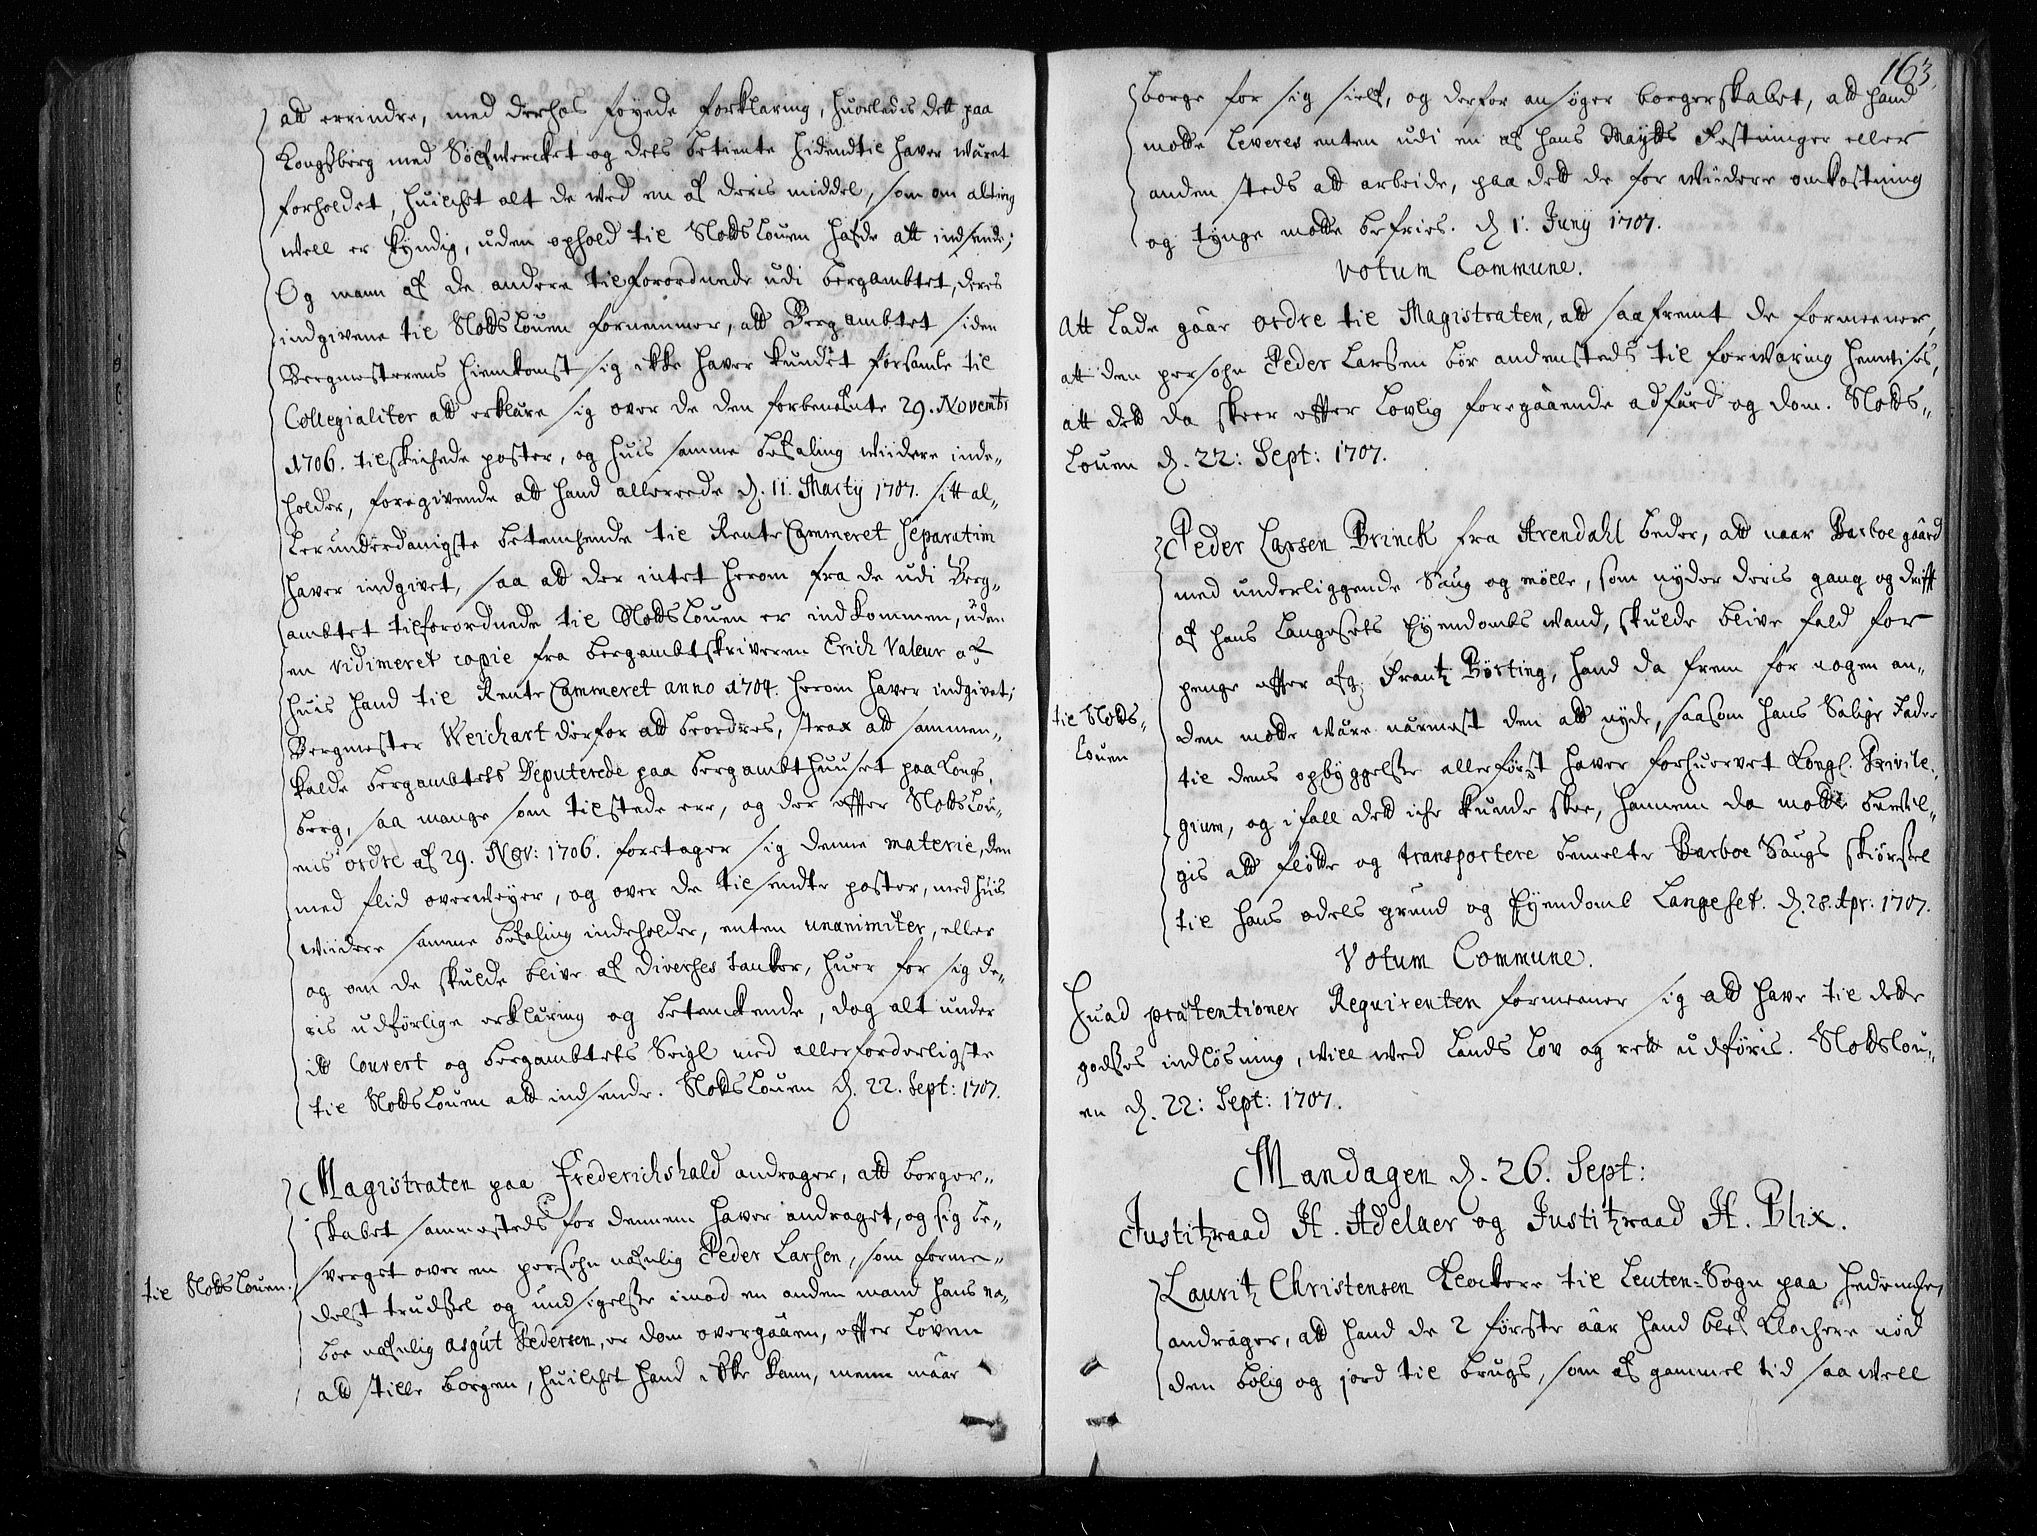 att errindre, med derhos føyede forklaring, huorledis dett paa
Kongsberg med Sølfwercket og dets betiente hidendtil hafver wæret
forholdet, huilchet alt de wed en af deris middel, som om alting
well er kyndig, uden ophold til Slotsloven hafde att indsende;
Og mann af de andere tilforordnede udi bergambtet, deres
indgivene til Slotsloven fornemmer, att Bergambtet siden
Bergmesterens hiemkomst sig icke hafver kundet forsamle til
Collegialiter att erklære sig over de den forbenefnte 29. Novembr
1706. tilskichede poster, og huis samme befaling widere inde-
holder, foregivende att hand allereede d. 11. Marty 1707. sitt al-
lerunderdanigste betenchende til Rente Cammeret separatim
hafver indgivet, saa att der intet herom fra de udi Berg-
ambtet tilforordnede til Slotsloven er indkommen, uden
en vidimeret copie fra bergambtskriveren Erich Valeur af
huis hand til Rente Cammeret anno 1704. herom hafver indgivet;
Bergmester Weichart derfor att beordres, strax att sammen-
kalde bergambtets Deputerede paa bergambthuuset paa Kongs-
berg, saa mange som tilstede ere, og der effter Slotslov-
ens ordre af 29. Nov: 1706. foretager sig denne materie, den
med flid overweyer, og over de tilsendte poster, med huis
widere samme befaling indeholder, enten unanimiter, eller
og om de skulde blive af diverses tanker, huer for sig de-
ris udførlige erklæring og betenckende, dog alt under
itt Couvert og bergambtets Seigl med allerforderligste
til Slotsloven att indsende. Slotsloven d. 22. Sept: 1707.
Magistraten paa Frederichshald andrager, att borger-
skabet sammesteds for dennem hafver andraget, og sig be-
sverget over en persohn nafnlig Peder Larsen, som forme-
til Slotsloven.
delst trudsel og undsigelse imod en anden mand hans na-
boe nafnlig Asgut Pedersen, er dom overgaaen, effter Loven
att stille borgen, huilchet hand icke kand, menn maae
163.
borge for sig sielf, og derfor ansøger borgerskabet, att hand
motte leveres enten udi en af hans Maytts Festninger eller
anden steds att arbeide, paa dett de for widere omkostning
og tynge motte befries. d 1. Juny 1707.
Votum Commune.
Att lade gaae ordre til Magistraten, att saafremt de formeener,
att den persohn Peder Larsen bør andensteds til forwaring henwises,
att dett da skeer effter Lovlig foregaaende adfærd og dom. Slots-
loven d. 22: Sept: 1707.
Peder Larsen Brinck fra Arendahl beder, att naar Barboe gaard
med underliggende Saug og mølle, som nyder deris gang og drifft
af hans Langesets Eyendombs wand, skulde blive fald for
penge effter afg: Frantz Børting, hand da frem for nogen an-
til Slots-
loven
den motte wære nærmest den att nyde, saasom hans Salige Fader
til dens opbyggelse allerførst hafver forhuervet Kongl. Privile-
gium, og ifall dett iche kunde skee, hannem da motte bevil-
gis att fløtte og transportere bemelte Barboe Saugs skiørsel
til hans odels grund og Eyendomb Langeset. d. 28. Apr: 1707.
Votum Commune.
Huad prætentioner Requirenten formeener sig att have til dette
godses indløsning, will wed lands lov og rett udføris. Slotslov-
en d. 22: Sept: 1707.
Mandagen d. 26. Sept:
Justitzraad H. Adelaer og Justitzraad H. Blix.
Lauritz Christensen Klockere til Leuten-Sogn paa Hedemarchen
andrager, att hand de 2 første aar hand blef Klochere nød
den bolig og jord til brugs, som af gammel tid saa well